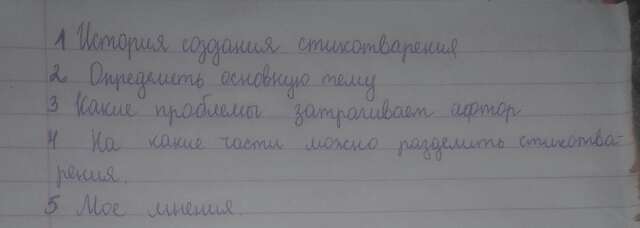 1 История создания стихотварения
2 Определить основную тему
3 Какие проблемы затрагивает афтор
4 На какие части можно разделить стихотва-
рения.
5 Мое мнения.